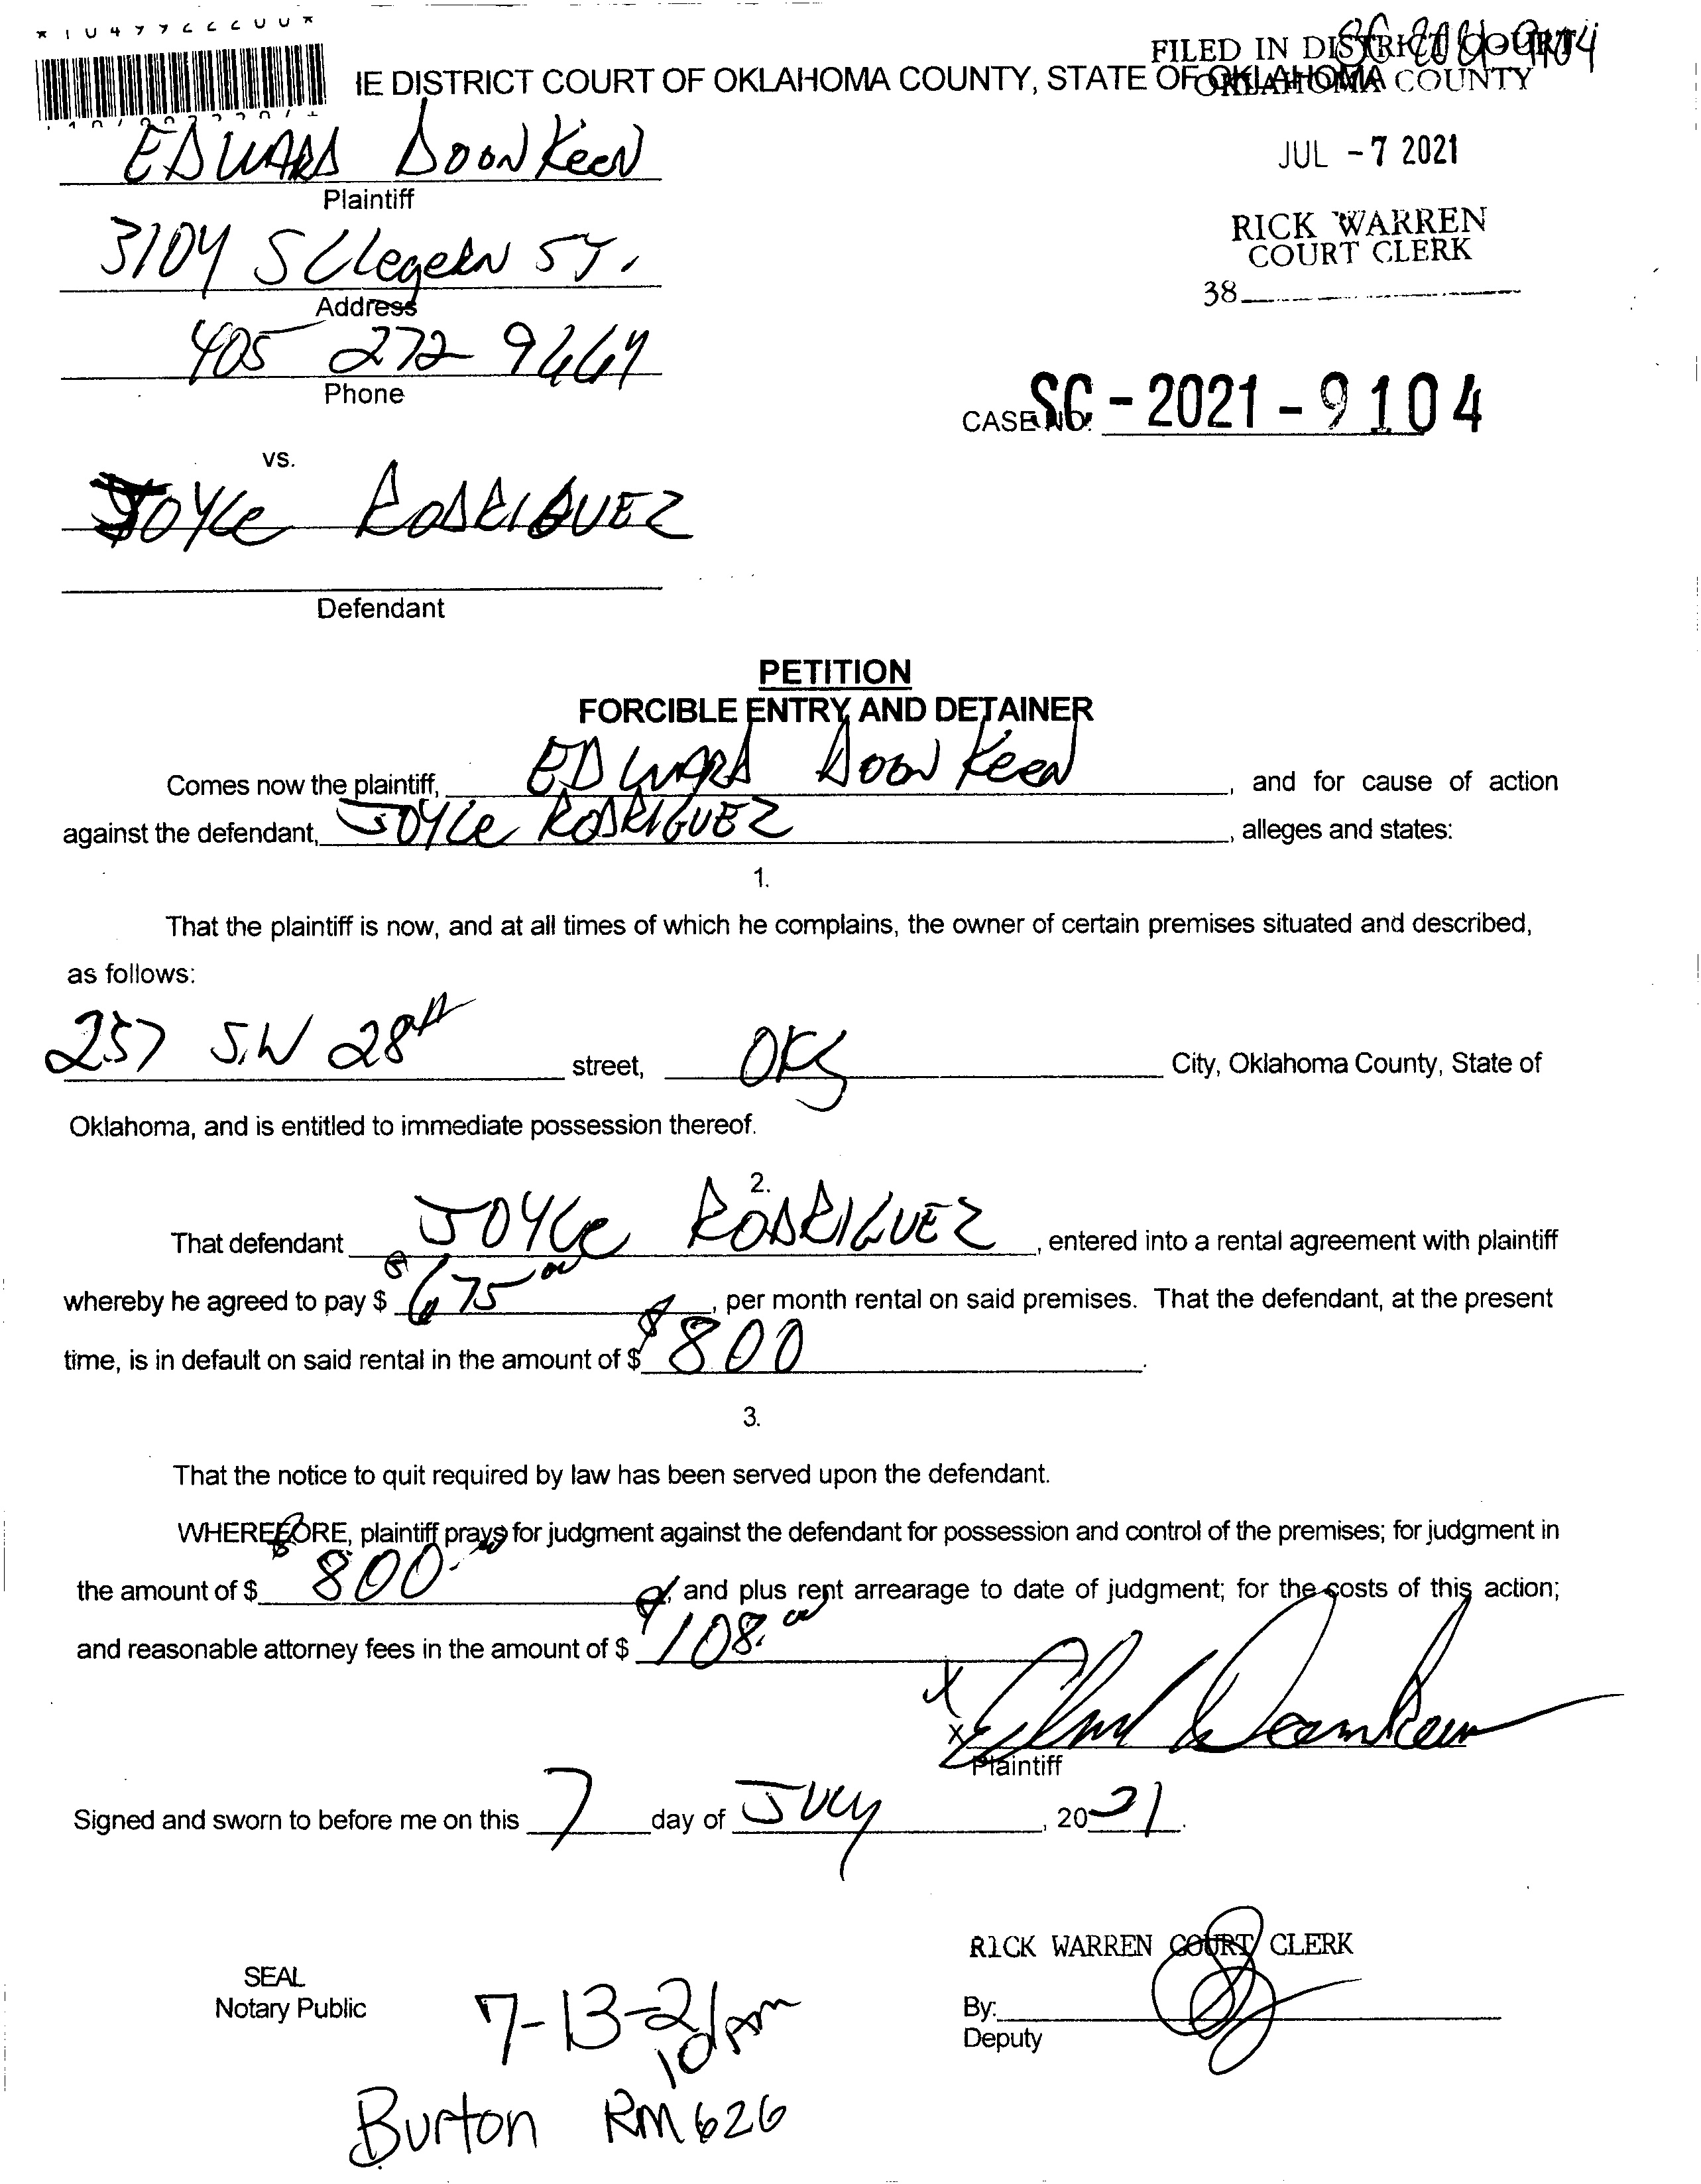 SC-2021-9104
FILED IN DISTRICT COURT
IE DISTRICT COURT OF OKLAHOMA COUNTY, STATE OF OKLAHOMA
OKLAHOMA COUNTY
EDWARD DOONKEEN
Plaintiff
JUL - 7 2021
3104 S CLegern ST.
Address
RICK WARREN
COURT CLERK
38
405 272 9664
Phone
CASE NO. SC - 2021 - 9104
vs.
JOYCe RODRIGUEZ
Defendant
PETITION
FORCIBLE ENTRY AND DETAINER
Comes now the plaintiff, EDWARD DOONKeen, and for cause of action
against the defendant, JOYCe RODRIGUEZ, alleges and states:
1.
That the plaintiff is now, and at all times of which he complains, the owner of certain premises situated and described,
as follows:
257 S.W 28th street, OKC City, Oklahoma County, State of
Oklahoma, and is entitled to immediate possession thereof.
2.
That defendant JOYCe RODRIGUEZ, entered into a rental agreement with plaintiff
whereby he agreed to pay $ $675 00, per month rental on said premises. That the defendant, at the present
time, is in default on said rental in the amount of $ $800.
3.
That the notice to quit required by law has been served upon the defendant.
WHEREFORE, plaintiff prays for judgment against the defendant for possession and control of the premises; for judgment in
the amount of $ $800.00, and plus rent arrearage to date of judgment; for the costs of this action;
and reasonable attorney fees in the amount of $ $108.00
X
X
Plaintiff
Signed and sworn to before me on this 7 day of JULY, 2021.
RICK WARREN COURT CLERK
SEAL
Notary Public
7-13-21
10 Am
By:
Deputy
Burton RM 626